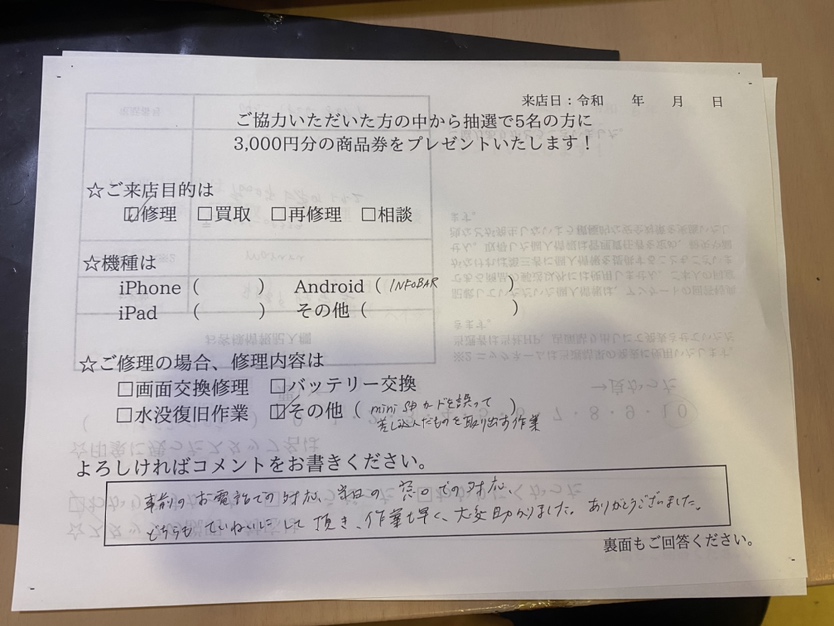 来店日：令和　　年　　月　　日
ご協力いただいた方の中から抽選で5名の方に
3,000円分の商品券をプレゼントいたします！
☆ご来店目的は
☑修理　□買取　□再修理　□相談
☆機種は
iPhone（　　　　）　Android（ INFOBAR　　　　）
iPad　（　　　　）　その他（　　　　　　　　）
☆ご修理の場合、修理内容は
□画面交換修理　□バッテリー交換
□水没復旧作業　☑その他（ mini SDカードを誤って　）
差し込んだものを取り出す作業
よろしければコメントをお書きください。
事前のお電話での対応、当日の窓口での対応、
どちらもていねいにして頂き、作業も早く、大変助かりました。ありがとうございました。
裏面もご回答ください。